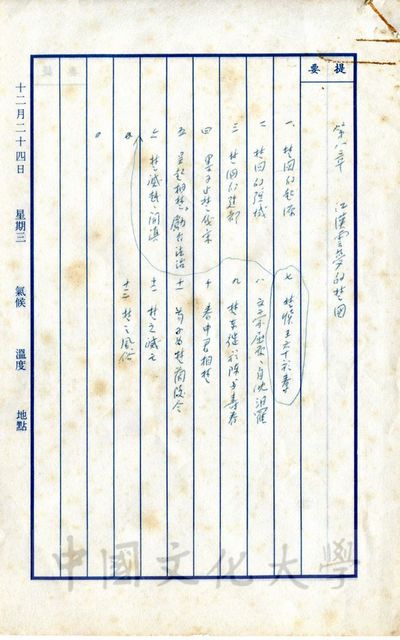 提要
第八章 江漢雲夢的楚國
一、楚國的起源
七 楚懷王 於秦
二、楚國的疆域
八、 屈原自沈汨羅
三 楚國的遷都
九 楚東保於陳與壽春
四 墨子止楚伐宋
十 春申君相楚
五 吳起相楚, 法治
十一 荀子為楚蘭陵令
六 楚滅越開滇
十二 楚之滅亡
十三 楚之風俗
十二月二十四日 星期三 氣候 溫度 地點
中國文化大學